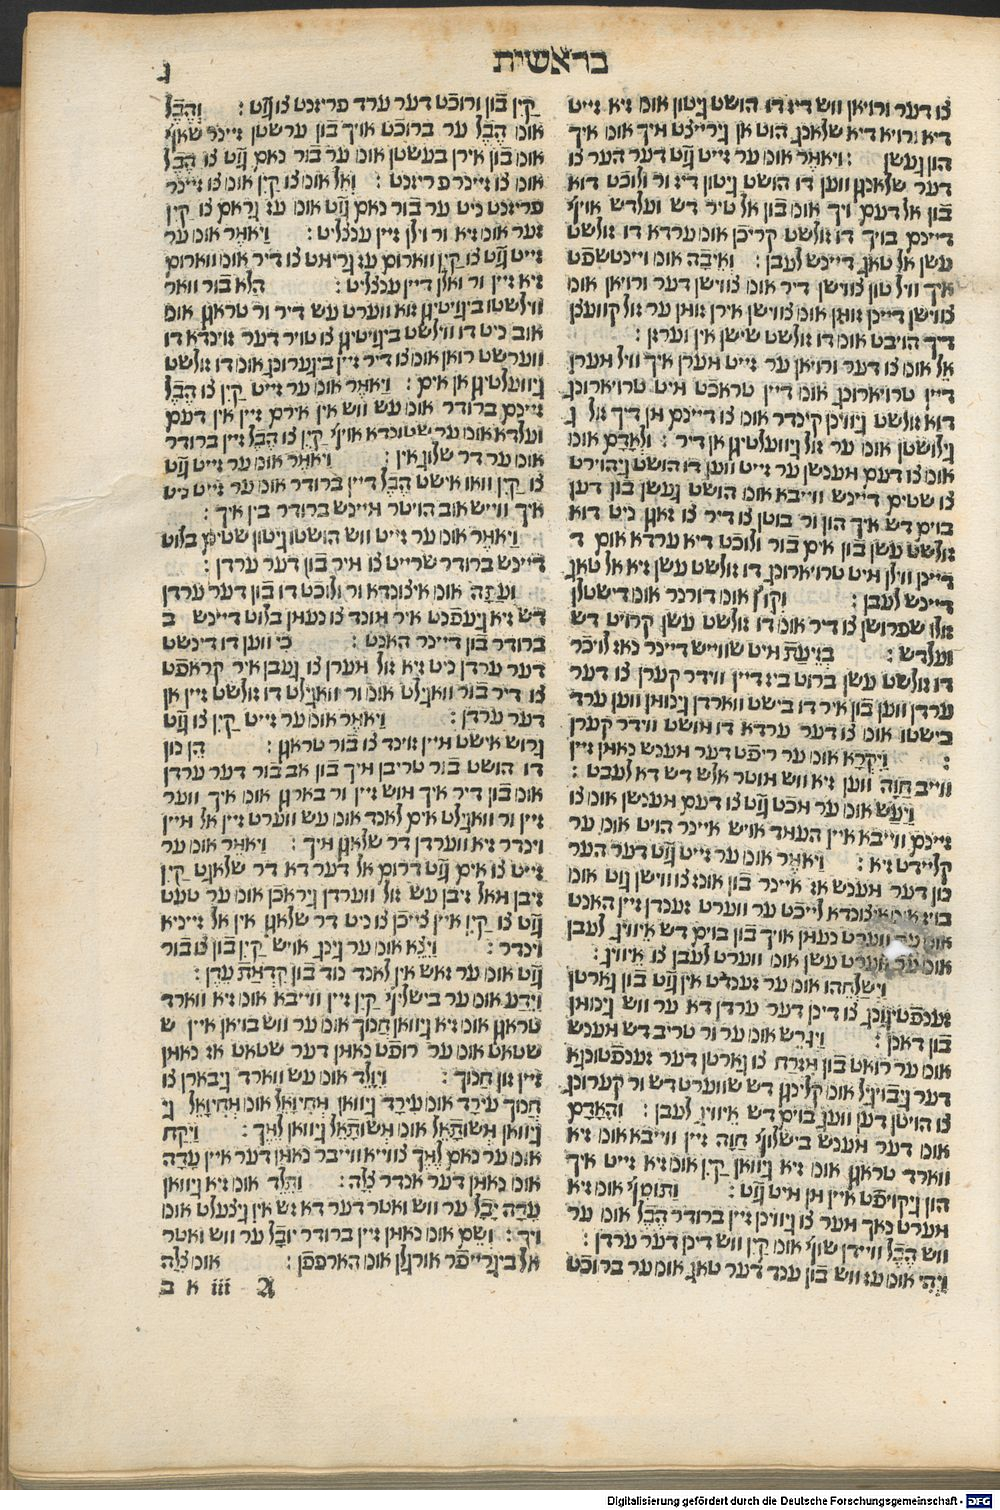 בראשית
ג
צו דער ורויאן ווש דיז דו הושט גיטון אומ זיא זייט
דיא ורויא דיא שלאנג הוט אן גירייצט מיך אומ איך
הון געשן : ויאמר אומ ער זייט גוט דער הער צו
דער שלאנגן ווען דו הושט גיטון דיז ור ולוכט דוא
בון אל דעם ויך אומ בון אל טיר דש וועלדש אויף
דיינם בויך דו זולשט קריכן אומ ערדא דו זולשט
עשן אל טאג דיינש לעבן : ואיבה אומ ויינטשפט
איך וויל טון צווישן דיר אומ צווישן דער ורויאן אומ
צווישן דיינן זומן אומ צווישן אירן זומן ער זול קוועצן
דיך הויבט אומ דו זולשט שישן אין וערזן :
אל אומ צו דער ורויאן ער זייט מערן איך וויל מערן
דיין טרויארונג אומ דיין טראכט מיט טרויארונג
דוא זולשט גיווינן קינדר אומ צו דיינם מן דיך זול ג
גילושטן אומ ער זול גיוועלטיגן אן דיר : ולאדם אומ
אומ צו דעם מענשן ער זייט ווען דו הושט גיהוירט
צו שטים דיינש ווייבא אומ הושט געשן בון דען
בוים דש איך הון ור בוטן צו דיר צו זאגן ניט דוא
זולשט עשן בון אים בור ולוכט דיא ערדא אום ד
דיינן ווילן מיט טרויארונג דו זולשט עשן זיא אל טאג
דיינש לעבן : וקוץ אומ דורנר אומ דישטלן
זולן שפרושן צו דיר אומ דו זולשט עשן קרויט דש
וועלדש : בזיעת מיט שווייש דיינר נאז לויכר
דו זולשט עשן ברוט ביז דיין ווידר קערן צו דער
ערדן ווען בון איר דו בישט ווארדן גינומן ווען ערד
בישטו אומ צו דער ערדא דו מושט ווידר קערן
: ויקרא אומ ער ריפט דער מענש נאמן זיין
ווייב חוה ווען זיא ווש מוטר אלש דש דא לעבט :
ויעש אומ ער מכט גוט צו דעם מענשן אומ צו
זיינם ווייבא איין העמד אויש איינר הויט אומ ער
קליידט זיא : ויאמר אומ ער זייט גוט דער הער
נון דער מענש אז איינר בון אונז צו ווישן גוט אומ
בויז אומ איצונדא לייכט ער ווערט זענדן זיין האנט
אומ ער ווערט נעמן אויך בון בוים דש איוויג לעבן
אומ ער ווערט עשן אומ ווערט לעבן צו איוויג :
וישלחהו אומ ער זענדט אין גוט בון גארטן
זענפטיגונג צו דינן דער ערדן דא ער ווש גינומן
בון דאנן : ויגרש אומ ער ור טריב דש מענש
אומ ער רואט בון מזרח צו גארטן דער זענפטונגא
דער גיבויגיל אומ קלינגן דש שווערט דש ור קערונג
צו הויטן דען וועג בוים דש איוויג לעבן : והאדם
אומ דער מענש בישלויף חוה זיין ווייבא אומ זיא
ווארד טראגן אומ זיא גיוואן קין אומ זיא זייט איך
הון גיקויפט איין מן מיט גוט : ותוסף אומ זיא
מערט נאך מער צו גיווינן זיין ברודר הבל אומ ער
ווש הבל וויידן שוף אומ קין ווש דינן דער ערדן :
ויהי אומ עז ווש בון ענד דער טאג אומ ער ברוכט
קין בון ורוכט דער ערד פריזנט צו גוט : והבל
אומ הבל ער ברוכט אויך בון ערשטן זיינר שאף
אומ בון אירן בעשטן אומ ער בור נאם גוט צו הבל
אומ צו זיינר פריזנט : ואל אומ צו קין אומ צו זיינר
פריזנט ניט ער בור נאם גוט אומ עז גראם צו קין
זער אומ זיא ור וילן זיין ענצליט : ויאמר אומ ער
זייט גוט צו קין ווארום עז גרימט צו דיר אומ ווארום
זיא זיין ור ואלן דיין ענצליט : הלא בור וואר
ווילשטו ביגויטיגן זוא ווערט עש דיר ור טראגן אומ
אוב ניט דו ווילשט ביגויטיגן צו טויר דער זוינדא דו
ווערשט רואן אומ צו דיר זיין ביגערונג אומ דו זולשט
גיוועלטיגן אן אים : ויאמר אומ ער זייט קין צו הבל
זיינם ברודר אומ עש ווש אין אירם זיין אין דעם
וועלדא אומ ער שטונדא אויף קין צו הבל זיין ברודר
אומ ער דר שלוג אין : ויאמר אומ ער זייט גוט
צו קין וואו אישט הבל דיין ברודר אומ ער זייט ניט
איך ווייש אוב הויטר מיינש ברודר בין איך :
ויאמר אומ ער זייט ווש הושטו גיטון שטים בלוט
דיינש ברודר שרייט צו מיר בון דער ערדן :
ועתה אומ איצונדא ור ולוכט דו בון דער ערדן
דש זיא געפנט איר מונד צו נעמן בלוט דיינש ב
ברודר בון דיינר האנט : כי ווען דו דינשט
דער ערדן ניט זיא זול מערן צו געבן איר קראפט
צו דיר בור וואגילט אומ ור וואגילט דו זולשט זיין אן
דער ערדן : ויאמר אומ ער זייט קין צו גוט
גרוש אישט מיין זוינד צו בור טראגן : הן נון
דו הושט בור טריבן מיך בון אב בור דער ערדן
אומ בון דיר איך מוש זיין ור בארגן אומ איך ווער
זיין ור וואגילט אים לאנד אומ עש ווערט זיין אל מיין
וינדר זיא ווערדן דר שלאגן מיך : ויאמר אומ ער
זייט צו אים גוט דרום אל דער דא דר שלאגט קין
זיבן מאל זיבן עש זול ווערדן גיראכן אומ ער טעט
גוט צו קין איין צייכן צו ניט דר שלאגן אין אל זייניא
וינדר : ויצא אומ ער גינג אויש קין בון צו בור
גוט אומ ער זאש אין לאנד נוד בון קדמת עדן :
וידע אומ ער בישליף קין זיין ווייבא אומ זיא ווארד
טראגן אומ זיא גיוואן חנוך אומ ער ווש בויאן איין ש
שטאט אומ ער רופט נאמן דער שטאט אז נאמן
זיין זון חנוך : ויולד אומ עש ווארד גיבארן צו
חנוך עירד אומ עירד גיוואן מחויאל אומ מחייאל גי
גיוואן משותאל אומ משותאל גיוואן למך : ויקח
אומ ער נאם למך צווייא ווייבר נאמן דער איין עדה
אומ נאמן דער אנדר צלה : ותלד אומ זיא גיוואן
עדה יבל ער ווש ואטר דער דא זש אין גיצעלט אומ
ויך : ושם אומ נאמן זיין ברודר יובל ער ווש ואטר
אל ביגרייפר אורגלן אומ הארפפן : אומ צלה
A iii א ב
Digitalisierung gefördert durch die Deutsche Forschungsgemeinschaft - DFG